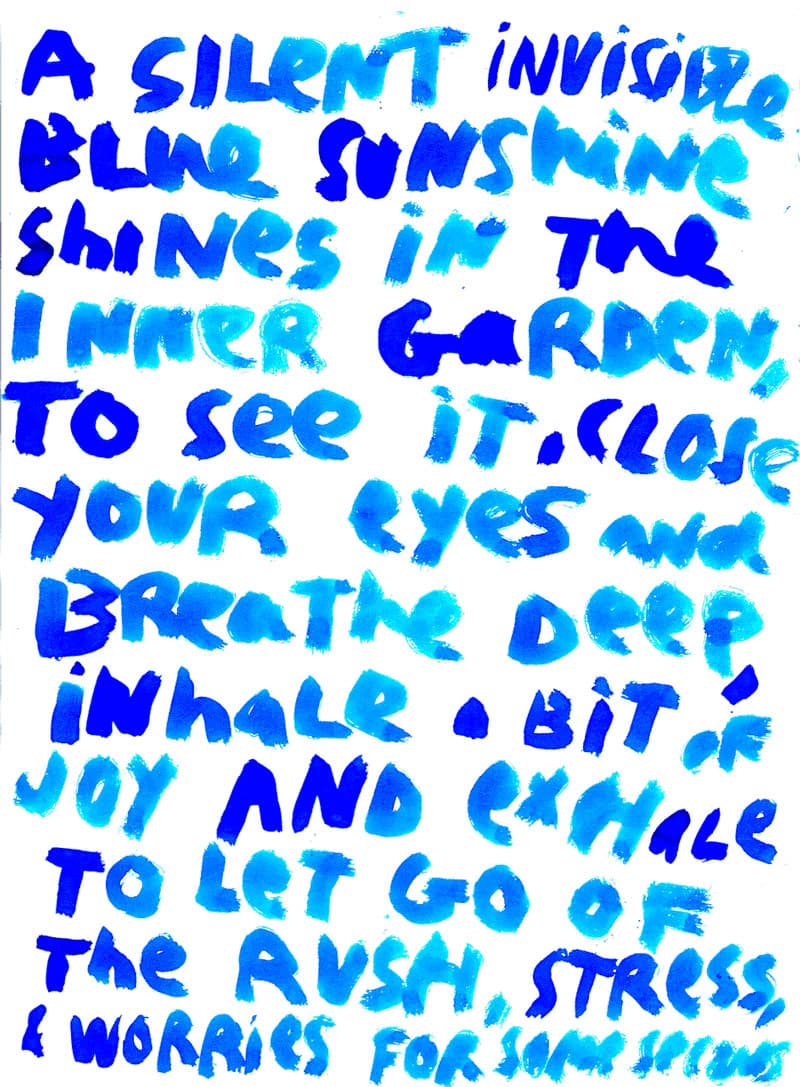 A SILENT iNViSiBLe
BLUe SUNShiNe
ShiNes iN The
INNER GaRDeN,
TO See iT.CLOSe
YOUR eYeS AND
BReaThe Deep
iNhaLe a BiT OF
JOY AND exHaLe
TO LeT GO OF
The RUSH, STRess,
& WORRies FOR SOMe SeCONDS